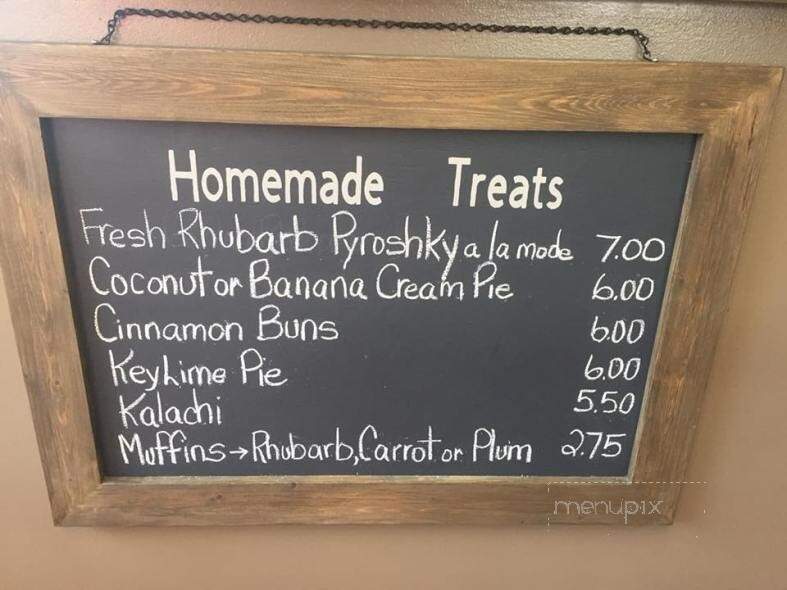 Homemade Treats
Fresh Rhubarb Pyroshky a la mode 7.00
Coconut or Banana Cream Pie 6.00
Cinnamon Buns 6.00
Key Lime Pie 6.00
Kalachi 5.50
Muffins → Rhubarb, Carrot or Plum 2.75
menupix